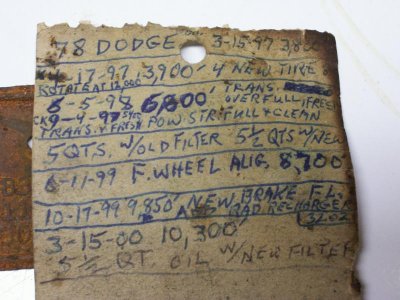 78 DODGE 3-15-97
4-17-97 3,900' 4 NEW TIRE
ROTATE AT 12,000 TRANS.
8-5-98 6,800' OVERFULL, FREE
CK 9-4-97 POW STR. FULL & CLEAN
TRANS. & FRESH
5 QTS. W/OLD FILTER 5 1/2 QTS W/NEW
6-11-99 F. WHEEL ALIG. 8,700'
10-17-99 9,850' NEW BRAKE FL.
AND RAD RECHARGER
3-15-00 10,300'
5 1/2 QT OIL W/NEW FILTER